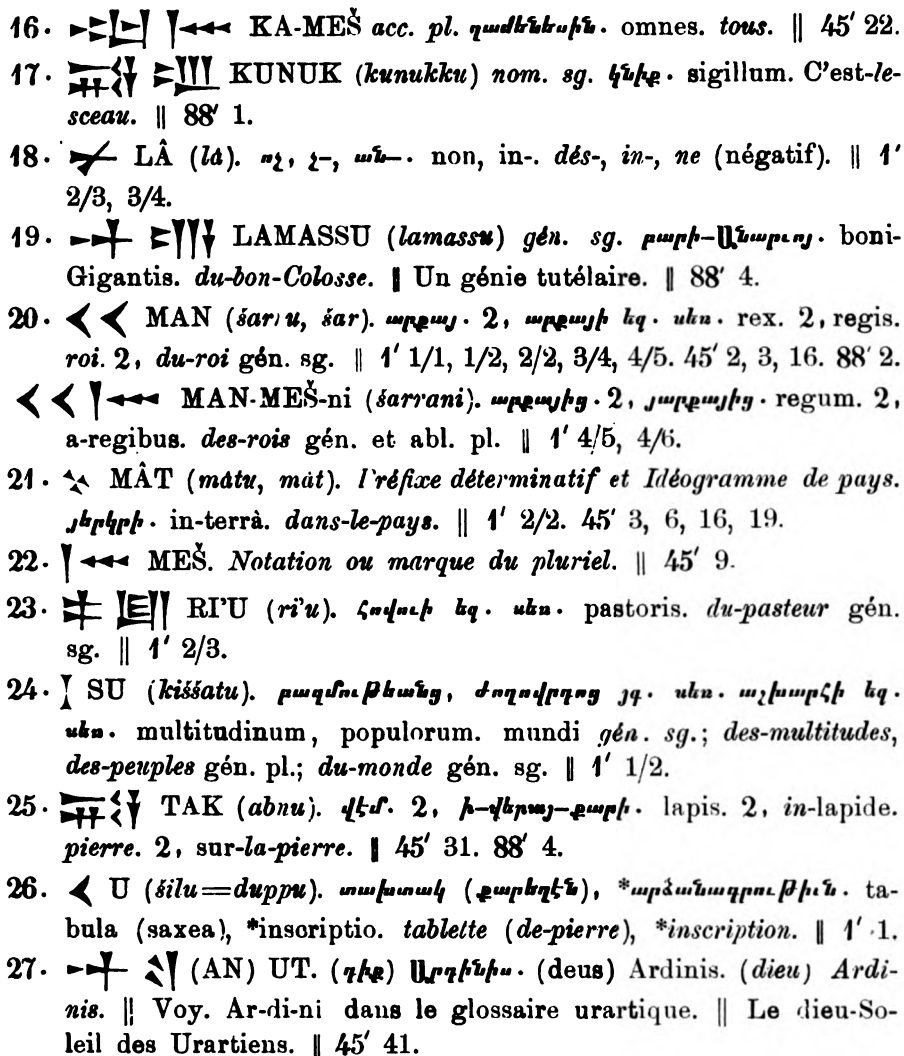 16. 𒅗𒈨𒌍 KA-MEŠ acc. pl. զամենեսին. omnes. tous. || 45′ 22.
17. KUNUK (kunukku) nom. sg. կնիք. sigillum. C’est-le-
sceau. || 88′ 1.
18. LÂ (lá). ոչ, չ-, ան—. non, in-. dés-, in-, ne (négatif). || 1′
2/3, 3/4.
19. LAMASSU (lamassu) gén. sg. բարի-Անարւոյ. boni-
Gigantis. du-bon-Colosse. || Un génie tutélaire. || 88′ 4.
20. 𒌋𒌋 MAN (šarru, šar). արքայ. 2, արքայի եզ. սեռ. rex. 2, regis.
roi. 2, du-roi gén. sg. || 1′ 1/1, 1/2, 2/2, 3/4, 4/5. 45′ 2, 3, 16. 88′ 2.
𒌋𒌋𒈨𒌍 MAN-MEŠ-ni (šarrani). արքայից. 2, յարքայից. regum. 2,
a-regibus. des-rois gén. et abl. pl. || 1′ 4/5, 4/6.
21. MÂT (mátu, mát). Préfixe déterminatif et Idéogramme de pays.
յերկրի. in-terrà. dans-le-pays. || 1′ 2/2. 45′ 3, 6, 16, 19.
22. 𒈨𒌍 MEŠ. Notation ou marque du pluriel. || 45′ 9.
23. RI’U (ri’u). հովուի եզ. սեռ. pastoris. du-pasteur gén.
sg. || 1′ 2/3.
24. SU (kiššatu). բազմութեանց, ժողովրդոց յգ. սեռ. աշխարհի եզ.
սեռ. multitudinum, populorum. mundi gén. sg.; des-multitudes,
des-peuples gén. pl.; du-monde gén. sg. || 1′ 1/2.
25. TAK (abnu). վէմ. 2, ի-վերայ-քարի. lapis. 2, in-lapide.
pierre. 2, sur-la-pierre. || 45′ 31. 88′ 4.
26. 𒌋 U (šilu=duppu). տախտակ (քարեղէն), *արձանագրութիւն. ta-
bula (saxea), *inscriptio. tablette (de-pierre), *inscription. || 1′ 1.
27. 𒀭𒌓 (AN) UT. (դիք) Արդինիս. (deus) Ardinis. (dieu) Ardi-
nis. || Voy. Ar-di-ni dans le glossaire urartique. || Le dieu-So-
leil des Urartiens. || 45′ 41.